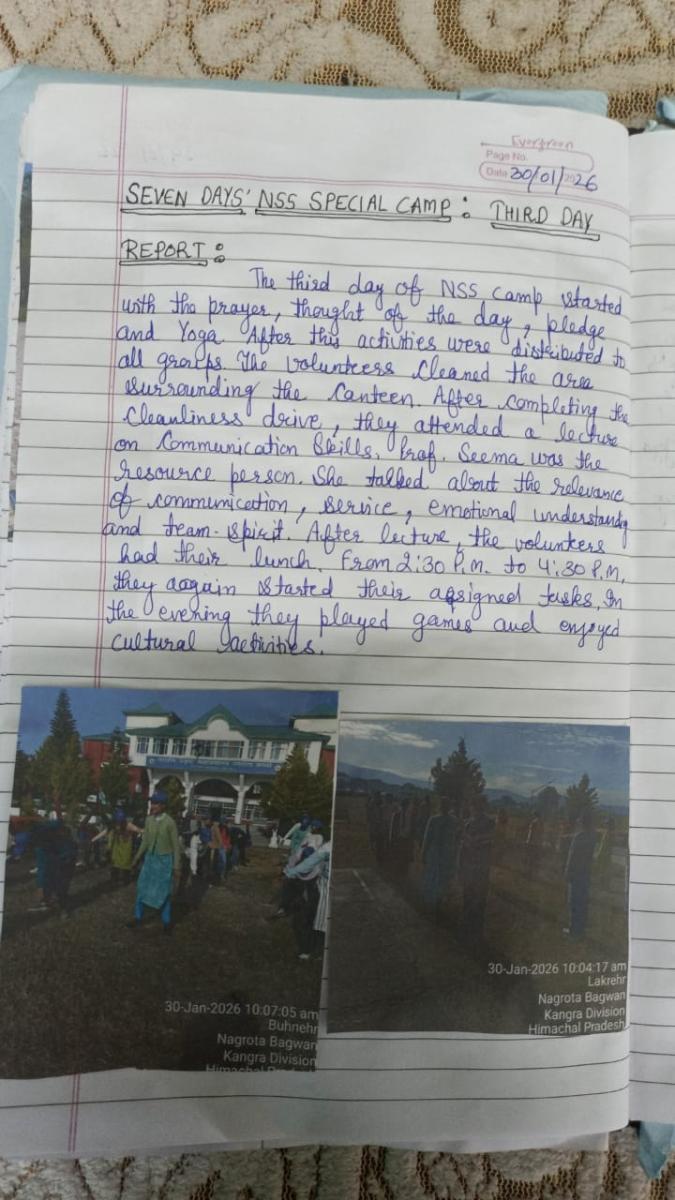 Evergreen
Page No.
Date 30/01/2026
SEVEN DAYS' NSS SPECIAL CAMP : THIRD DAY
REPORT :
The third day of NSS camp started
with the prayer, thought of the day, pledge
and Yoga. After this activities were distributed to
all groups. The volunteers cleaned the area
surrounding the Canteen. After completing the
cleanliness drive, they attended a lecture
on Communication Skills. Prof. Seema was the
resource person. She talked about the relevance
of communication, service, emotional understandg
and team-spirit. After lecture, the volunteers
had their lunch. From 2:30 P.M. to 4:30 P.M,
they aagain started their assigned tasks. In
the evening they played games and enjoyed
cultural activities.
30-Jan-2026 10:07:05 am
Buhnehr
Nagrota Bagwan
Kangra Division
Himachal Pradesh
30-Jan-2026 10:04:17 am
Lakrehr
Nagrota Bagwan
Kangra Division
Himachal Pradesh